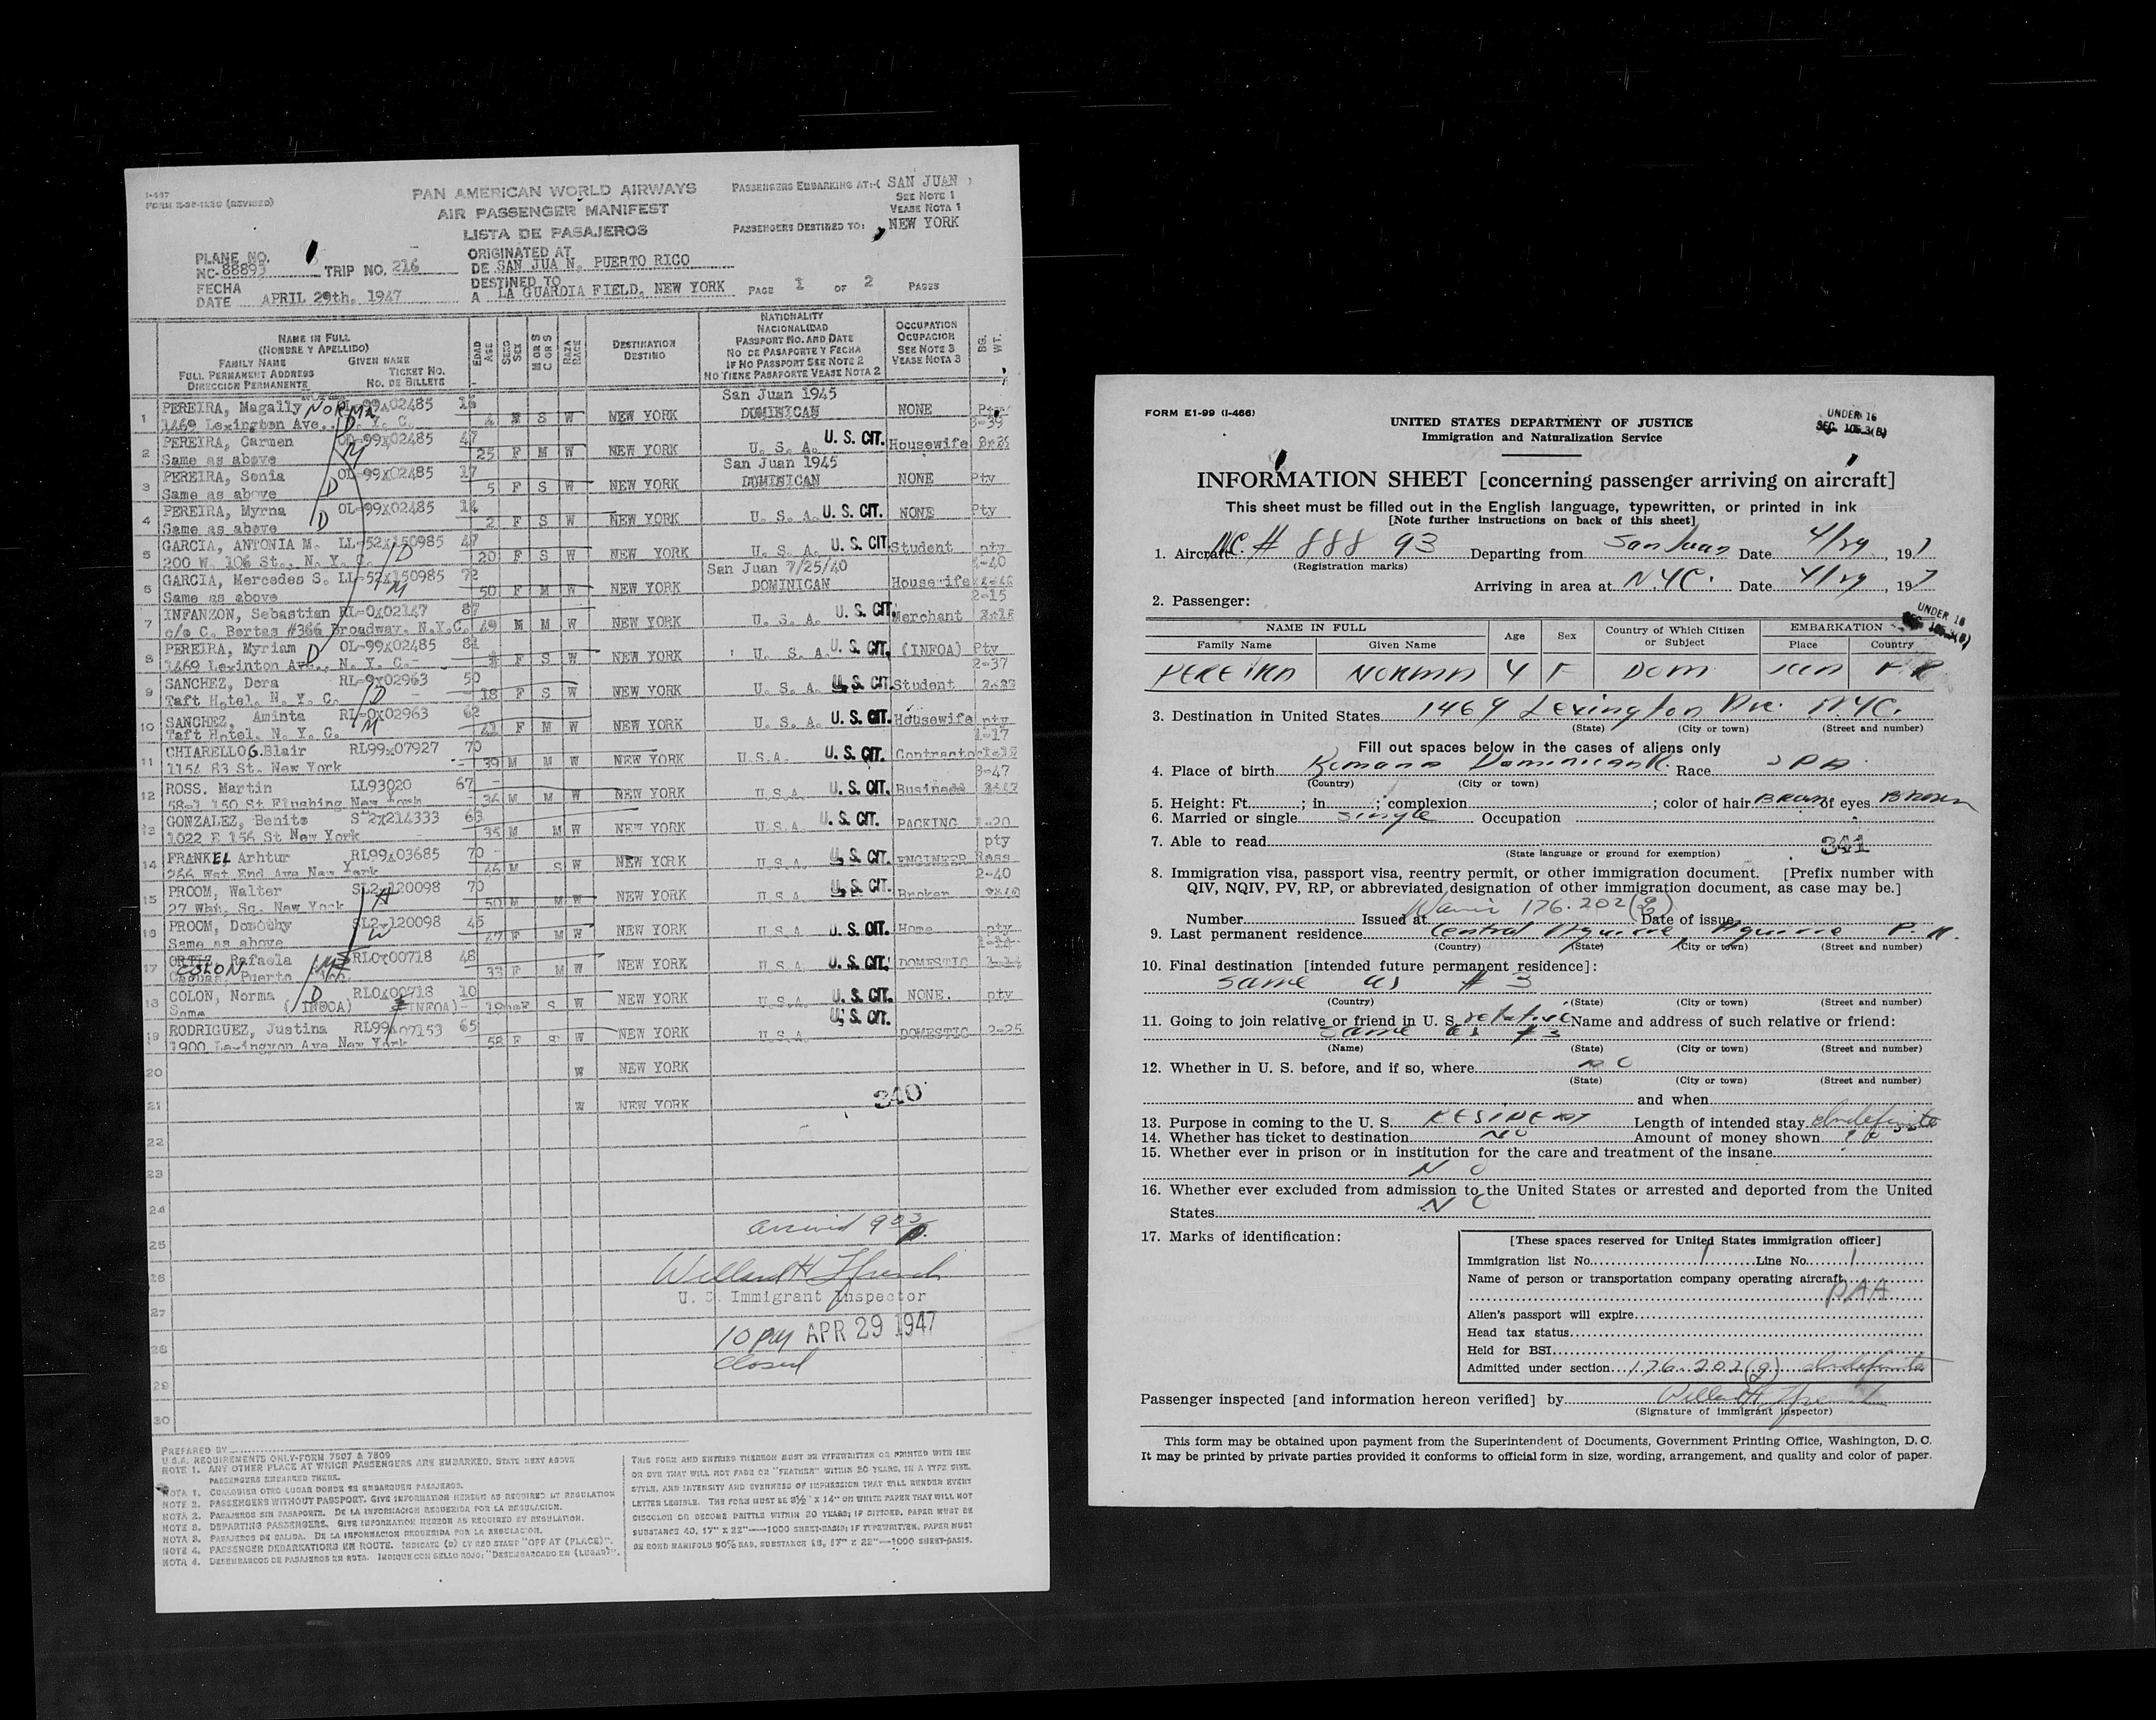 I-467
FORM E-98-1230 (REVISED)
PAN AMERICAN WORLD AIRWAYS
AIR PASSENGER MANIFEST
LISTA DE PASAJEROS
PASSENGERS EMBARKING AT:-( SAN JUAN )
SEE NOTE 1
VEASE NOTA 1
PASSENGERS DESTINED TO: NEW YORK
PLANE NO.
NC-88893 TRIP NO. 216
ORIGINATED AT
DE SAN JUA N, PUERTO RICO
FECHA
DATE APRIL 29th, 1947
DESTINED TO
A LA GUARDIA FIELD, NEW YORK PAGE 1 OF 2 PAGES
NAME IN FULL
(NOMBRE Y APELLIDO)
FAMILY NAME GIVEN NAME
FULL PERMANENT ADDRESS TICKET NO.
DIRECCION PERMANENTE NO. DE BILLETE
EDAD AGE
SEXO SEX
M OR S C OR S
RAZA RACE
DESTINATION
DESTINO
NATIONALITY
NACIONALIDAD
PASSPORT NO. AND DATE
NO DE PASAPORTE Y FECHA
IF NO PASSPORT SEE NOTE 2
NO TIENE PASAPORTE VEASE NOTA 2
OCCUPATION
OCUPACION
SEE NOTE 3
VEASE NOTA 3
BG. WT.
1 PEREIRA, Magally NORMA OL-99X02485 San Juan 1945
1469 Lexington Ave., N. Y. C. D 4 S W NEW YORK DOMINICAN NONE
2 PEREIRA, Carmen OL-99X02485 47 U. S. CIT. 3-39
Same as above M 25 F M W NEW YORK U. S. A. Housewife
3 PEREIRA, Sonia OL-99X02485 37 San Juan 1945
Same as above D 5 F S W NEW YORK DOMINICAN NONE Pty
4 PEREIRA, Myrna OL-99X02485 14
Same as above D 2 F S W NEW YORK U. S. A. U. S. CIT. NONE Pty
5 GARCIA, ANTONIA M. LL-52X150985 47
200 W. 106 St., N. Y. C. D 20 F S W NEW YORK U. S. A. U. S. CIT Student pty
6 GARCIA, Mercedes S. LL-52X150985 72 San Juan 7/25/40
Same as above M 50 F M W NEW YORK DOMINICAN Housewife
7 INFANZON, Sebastian RL-0X02147 87 2-15
c/o C. Bertas #366 Broadway, N.Y.C. 49 M M W NEW YORK U. S. A. U. S. CIT. Merchant
8 PEREIRA, Myriam OL-99X02485 84
1469 Lexinton Ave., N. Y. C. D F S W NEW YORK U. S. A. U. S. CIT. (INFOA) Pty
9 SANCHEZ, Dora RL-9X02963 50 2-37
Taft Hotel, N. Y. C. D 18 F S W NEW YORK U. S. A. U. S. CIT. Student
10 SANCHEZ, Aminta RL-0X02963 62
Taft Hotel, N. Y. C. M 41 F M W NEW YORK U. S. A. U. S. CIT. Housewife pty
11 CHIARELLO G.Blair RL99x07927 70
1154 83 St. New York 39 M M W NEW YORK U.S.A. U. S. CIT. Contractor
12 ROSS. Martin LL93020 67 3-47
58-1 150 St Flushing New York 36 M M W NEW YORK U.S.A U. S. CIT. Business
13 GONZALEZ, Benito S 2X214333 63
1022 E 156 St New York 35 M M W NEW YORK U.S.A. U. S. CIT. PACKING
14 FRANKEL Arhtur RL99x03685 70 pty
266 Wst End Ave New York 46 M S W NEW YORK U.S.A. U. S. CIT. ENGINEER Ross
15 PROOM, Walter SL2x120098 70 2-40
27 Wsh. Sq. New York H 50 M M W NEW YORK U.S.A U. S. CIT. Broker
16 PROOM, Dorothy SL2x120098 45
Same as above W 47 F M W NEW YORK U.S.A U. S. CIT. Home pty
17 ORTIZ, Rafaela RL0X00718 48
COLON Caguas, Puerto Rico. M 33 F M W NEW YORK U.S.A. U. S. CIT. DOMESTIC
18 COLON, Norma RL0X00718 10
Same (INFOA) D (INFOA) F S W NEW YORK U.S.A. U. S. CIT. NONE. pty
19 RODRIGUEZ, Justina RL99X07153 65 U. S. CIT.
1900 Lexingyon Ave New York 58 F S W NEW YORK U.S.A. DOMESTIC 2-25
20 W NEW YORK
21 W NEW YORK 340
22
23
24
25 arrived 9 03 P.
26 Willard H French
27 U. S. Immigrant Inspector
28 10 PM APR 29 1947
closed
29
30
PREPARED BY
U.S.A. REQUIREMENTS ONLY-FORM 7507 & 7509
NOTE 1. ANY OTHER PLACE AT WHICH PASSENGERS ARE EMBARKED, STATE NEXT ABOVE
PASSENGERS EMBARKED THERE.
NOTA 1. CUALQUIER OTRO LUGAR DONDE SE EMBARQUEN PASAJEROS.
NOTE 2. PASSENGERS WITHOUT PASSPORT. GIVE INFORMATION HEREON AS REQUIRED BY REGULATION
NOTA 2. PASAJEROS SIN PASAPORTE. DE LA INFORMACION REQUERIDA POR LA REGULACION.
NOTE 3. DEPARTING PASSENGERS. GIVE INFORMATION HEREON AS REQUIRED BY REGULATION.
NOTA 3. PASAJEROS DE SALIDA. DE LA INFORMACION REQUERIDA POR LA REGULACION.
NOTE 4. PASSENGER DEBARKATIONS EN ROUTE. INDICATE (D) BY RED STAMP "OFF AT (PLACE)".
NOTA 4. DESEMBARCOS DE PASAJEROS EN RUTA. INDIQUE CON SELLO ROJO: "DESEMBARCADO EN (LUGAR)".
THIS FORM AND ENTRIES THEREON MUST BE TYPEWRITTEN OR PRINTED WITH INK
OR DYE THAT WILL NOT FADE OR "FEATHER" WITHIN 20 YEARS, IN A TYPE SIZE,
STYLE, AND INTENSITY AND EVENNESS OF IMPRESSION THAT WILL RENDER EVERY
LETTER LEGIBLE. THE FORM MUST BE 8½" X 14" ON WHITE PAPER THAT WILL NOT
DISCOLOR OR BECOME BRITTLE WITHIN 20 YEARS; IF DITTOED, PAPER MUST BE
SUBSTANCE 40, 17" X 22"—1000 SHEET-BASIS; IF TYPEWRITTEN, PAPER MUST
BE BOND MANIFOLD 50% RAG, SUBSTANCE 18, 17" X 22"—1000 SHEET-BASIS.
FORM E1-99 (I-466)
UNDER 16
SEC. 105.3(B)
UNITED STATES DEPARTMENT OF JUSTICE
Immigration and Naturalization Service
INFORMATION SHEET [concerning passenger arriving on aircraft]
This sheet must be filled out in the English language, typewritten, or printed in ink
[Note further instructions on back of this sheet]
1. Aircraft NC. # 888 93 Departing from San Juan Date 4/29, 197
(Registration marks)
Arriving in area at N.Y.C. Date 4/29, 197
2. Passenger:
UNDER 16
SEC. 105.3(B)
NAME IN FULL Age Sex Country of Which Citizen or Subject EMBARKATION
Family Name Given Name Place Country
PEREIRA NORMA 4 F DOM P.R.
3. Destination in United States 1469 Lexington Ave. N.Y.C.
(State) (City or town) (Street and number)
Fill out spaces below in the cases of aliens only
4. Place of birth Romana Dominican R. Race SPA
(Country) (City or town)
5. Height: Ft. ; in. ; complexion ; color of hair Brown of eyes Brown
6. Married or single single Occupation
7. Able to read 341
(State language or ground for exemption)
8. Immigration visa, passport visa, reentry permit, or other immigration document. [Prefix number with
QIV, NQIV, PV, RP, or abbreviated designation of other immigration document, as case may be.]
Number Issued at Waiver 176.202(g) Date of issue
9. Last permanent residence Central Aguirre, Aguirre P.R.
(Country) (State) (City or town) (Street and number)
10. Final destination [intended future permanent residence]:
same as #3
(Country) (State) (City or town) (Street and number)
11. Going to join relative or friend in U. S. relative Name and address of such relative or friend:
same as #3
(Name) (State) (City or town) (Street and number)
12. Whether in U. S. before, and if so, where NO
(State) (City or town) (Street and number)
and when
13. Purpose in coming to the U. S. RESIDENT Length of intended stay Indefinite
14. Whether has ticket to destination NO Amount of money shown
15. Whether ever in prison or in institution for the care and treatment of the insane
NO
16. Whether ever excluded from admission to the United States or arrested and deported from the United
States NO
17. Marks of identification:
[These spaces reserved for United States immigration officer]
Immigration list No. 1 Line No. 1
Name of person or transportation company operating aircraft
PAA
Alien's passport will expire
Head tax status
Held for BSI
Admitted under section 176.202(g) Indefinite
Passenger inspected [and information hereon verified] by Willard H French
(Signature of immigrant inspector)
This form may be obtained upon payment from the Superintendent of Documents, Government Printing Office, Washington, D. C.
It may be printed by private parties provided it conforms to official form in size, wording, arrangement, and quality and color of paper.